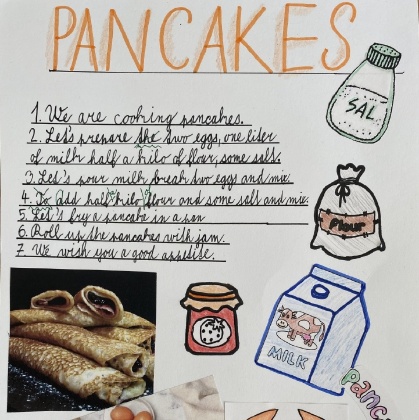 PANCAKES
SAL
1. We are cooking pancakes.
2. Let's prepare the two eggs, one liter
of milk half a kilo of flour, some salt.
3. Let's pour milk break two eggs and mix.
4. To add half kilo flour and some salt and mix.
5. Let's fry a pancake in a pan
6. Roll up the pancakes with jam.
7. We wish you a good appetise.
Flour
MILK
panc